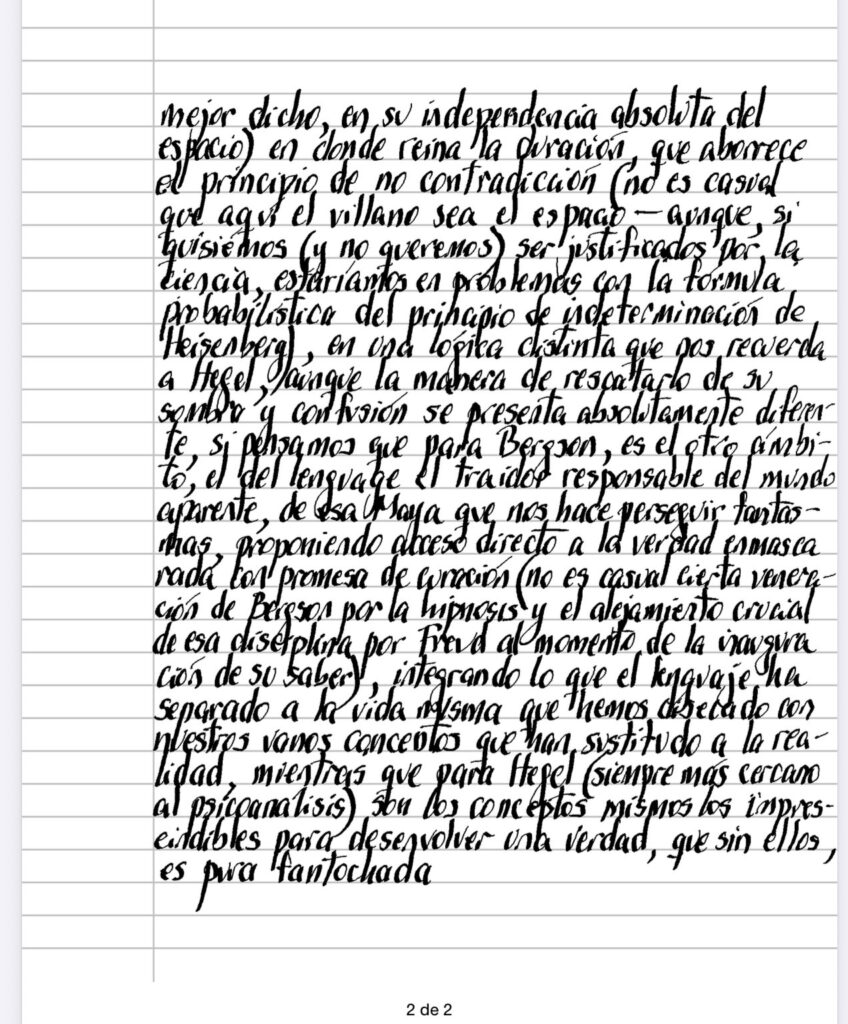 mejor dicho, en su independencia absoluta del
espacio) en donde reina la duración, que aborrece
el principio de no contradicción (no es casual
que aquí el villano sea el espacio — aunque, si
quisiémos (y no queremos) ser justificados por la
ciencia, estaríamos en problemas con la fórmula
probabilística del principio de indeterminación de
Heisenberg), en una lógica distinta que nos recuerda
a Hegel, aunque la manera de rescatarlo de su
sombra y confusión se presenta absolutamente diferen-
te, si pensamos que para Bergson, es el otro ámbi-
to, el del lenguage el traidor responsable del mundo
aparente, de esa Maya que nos hace perseguir fantas-
mas, proponiendo acceso directo a la verdad enmasca
rada con promesa de curación (no es casual cierta venera-
ción de Bergson por la hipnosis y el alejamiento crucial
de esa disciplina por Freud al momento de la inaugura
ción de su saber), integrando lo que el lenguaje ha
separado a la vida misma que hemos disecado con
nuestros vanos conceptos que han sustitudo a la rea-
lidad, mientras que para Hegel (siempre más cercano
al psicoanalisis) son los conceptos mismos los impres-
cindibles para desenvolver una verdad, que sin ellos,
es pura fantochada
2 de 2